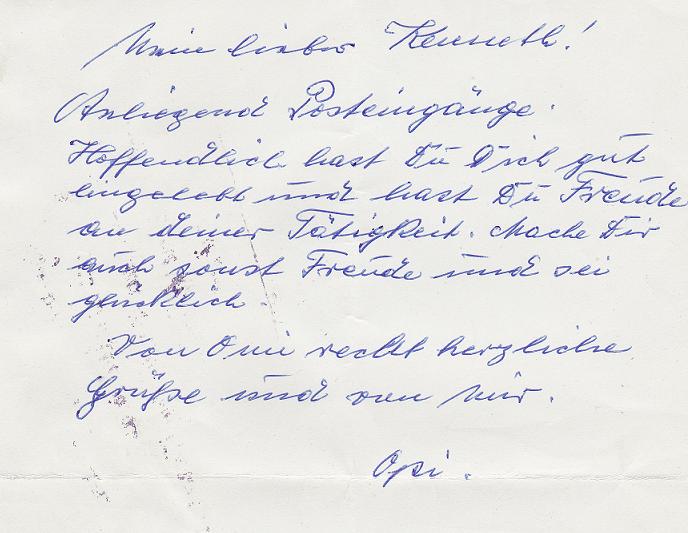 Mein lieber Kenneth!
Anliegend Posteingänge.
Hoffendlich hast Du Dich gut
eingelebt und hast Du Freude
an deiner Tätigkeit. Mache Dir
auch sonst Freude und sei
glücklich.
Von Omi recht herzliche
Grüße und von mir.
Opi.